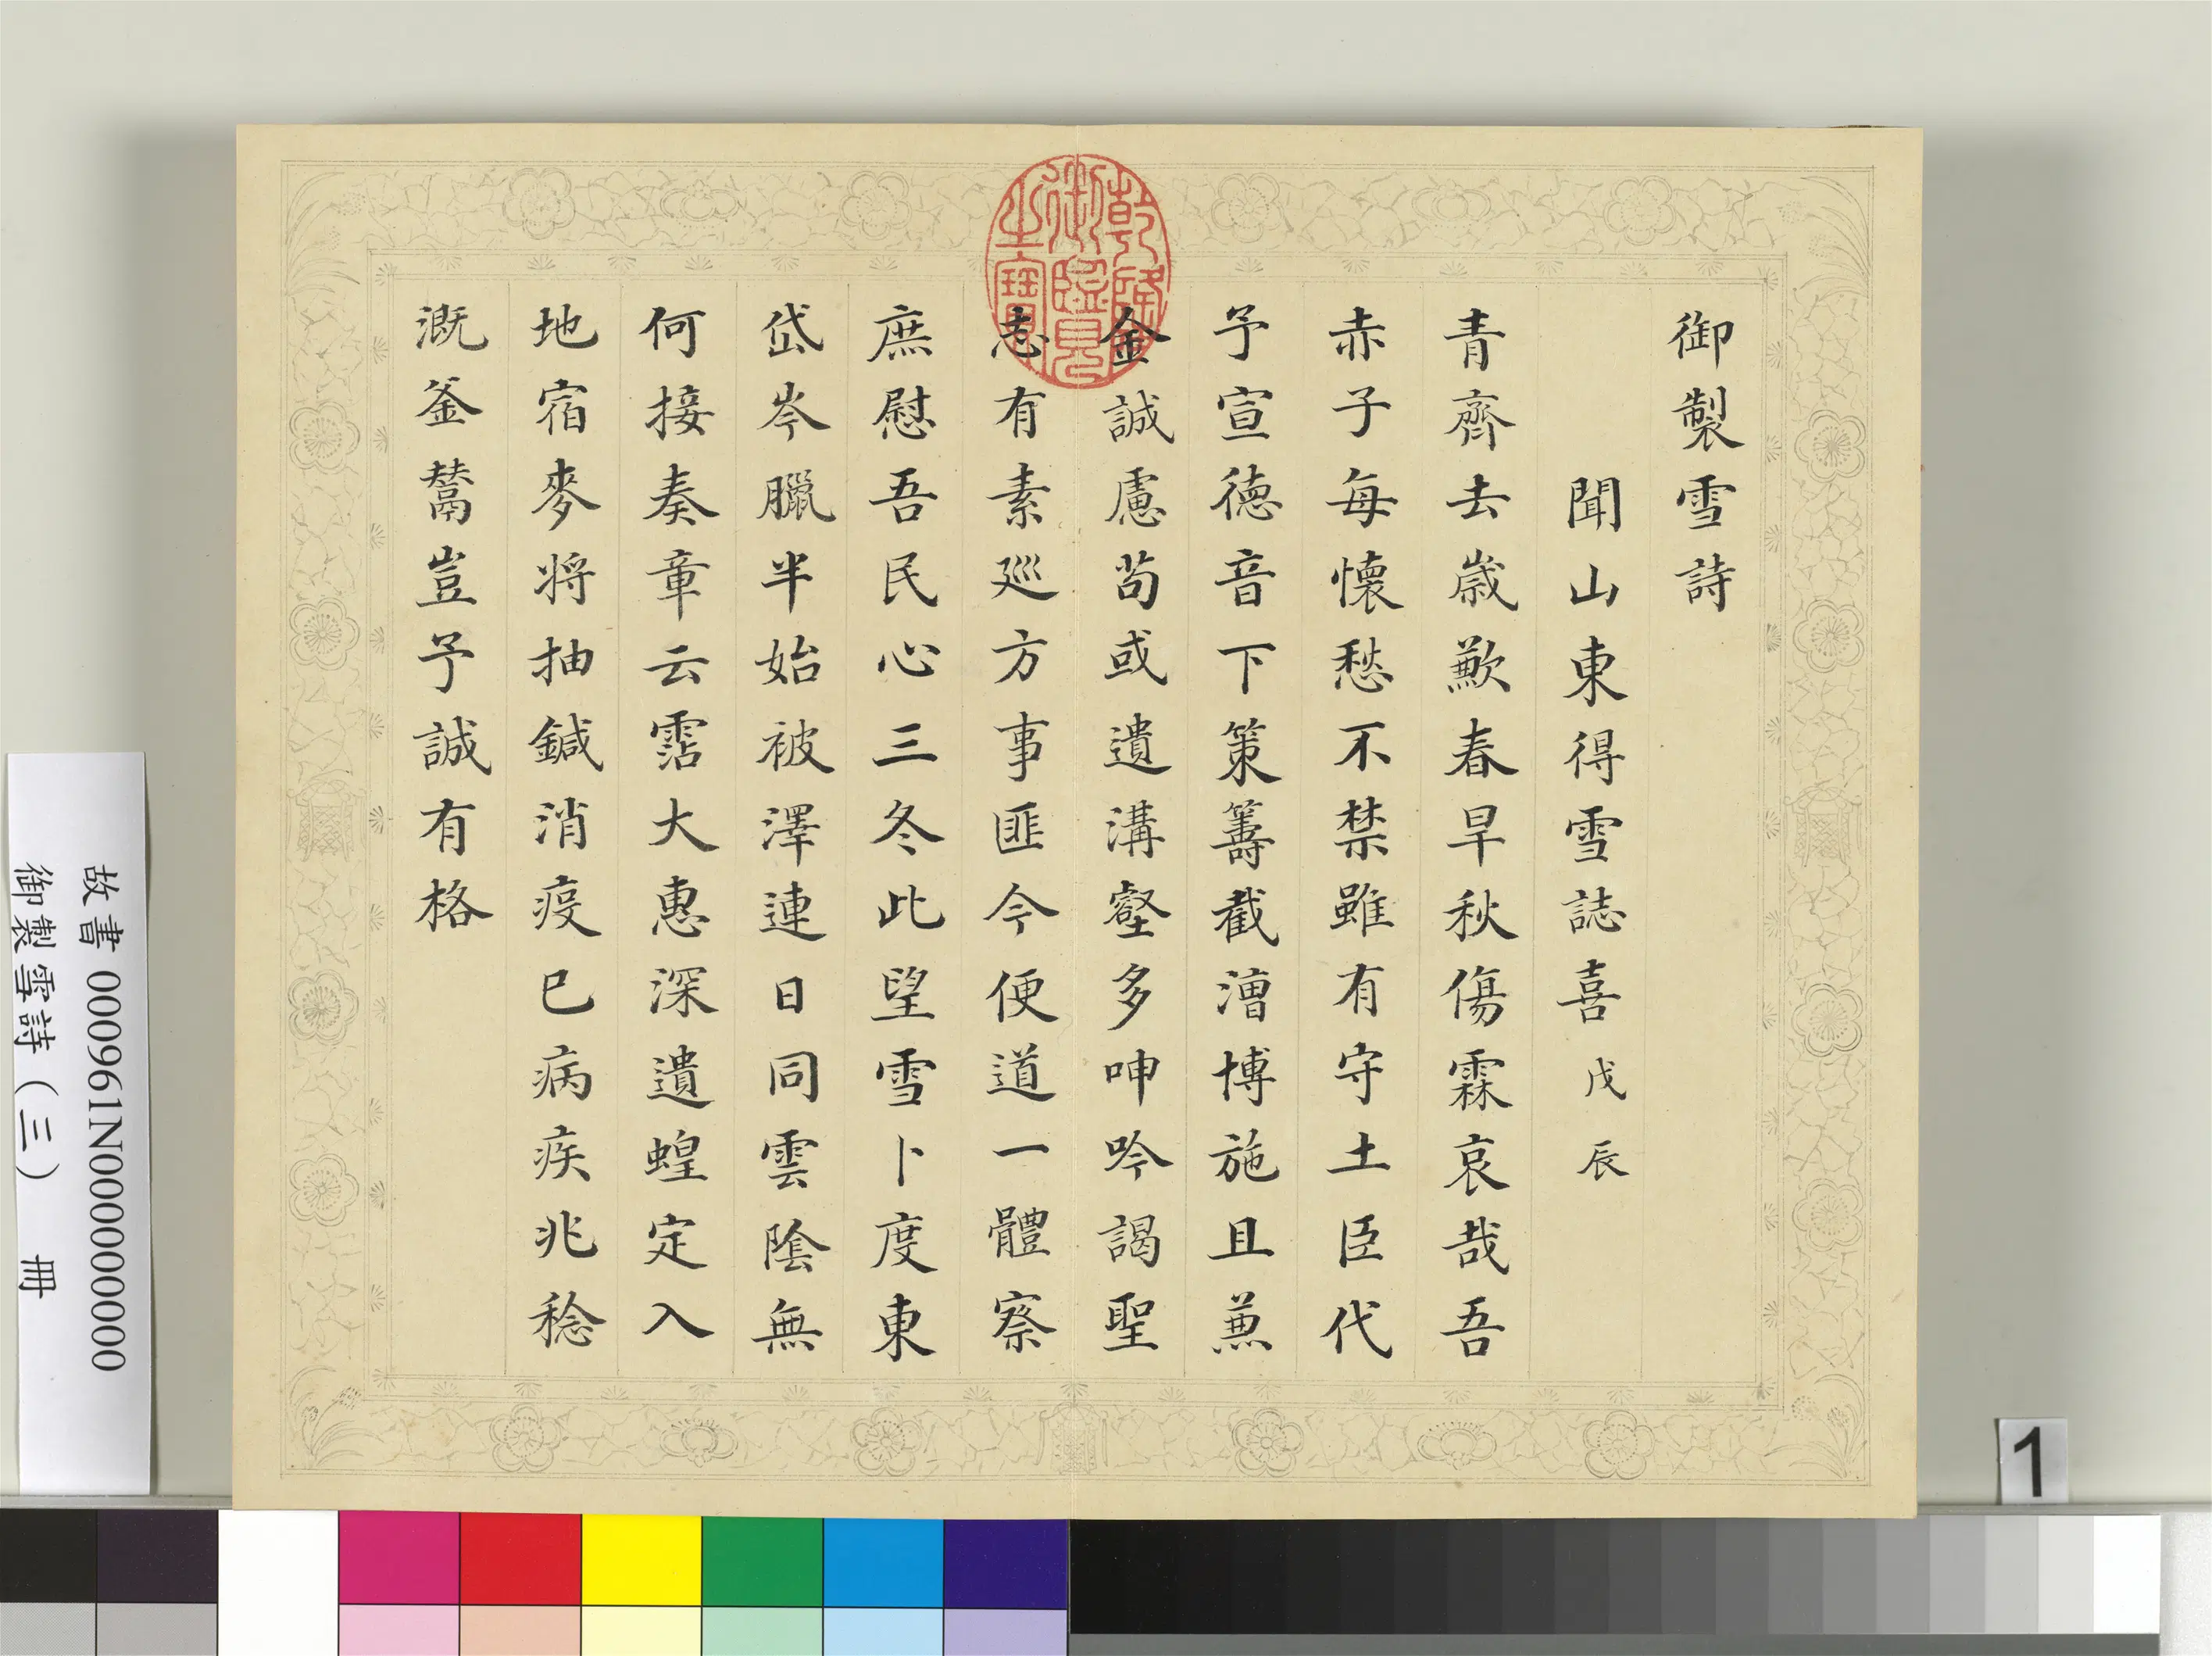 御製雪詩
聞山東得雪誌喜戊辰
青齊去歲歉春旱秋傷霖哀哉吾
赤子每懷愁不禁雖有守土臣代
予宣德音下策籌截漕博施且兼
金誠慮苟或遺溝壑多呻吟謁聖
志有素廵方事匪今便道一體察
庶慰吾民心三冬此望雪卜度東
岱岑臘半始被澤連日同雲陰無
何接奏章云霑大惠深遺蝗定入
地宿麥將抽鍼消疫已病疾兆稔
溉釜鬵豈予誠有格
乾隆御覽之寶
故書 000961N000000000
御製雪詩（三） 冊
1